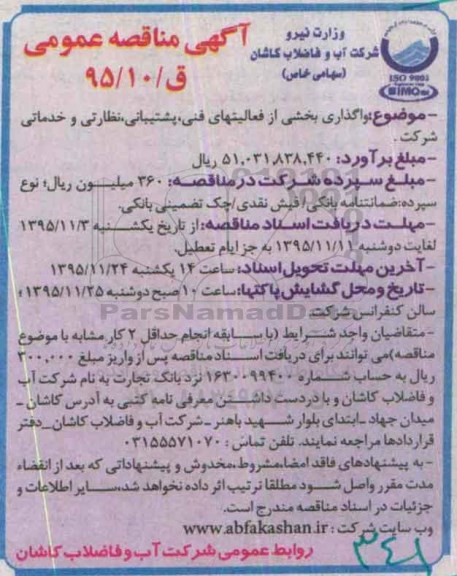 وزارت نیرو
شرکت آب و فاضلاب کاشان
(سهامی خاص)
آگهی مناقصه عمومی
ق/۹۵/۱۰
ISO 9001
BIMQR
- موضوع: واگذاری بخشی از فعالیتهای فنی، پشتیبانی، نظارتی و خدماتی
شرکت.
- مبلغ برآورد: ۵۱,۰۳۱,۸۳۸,۴۴۰ ریال
- مبلغ سپرده شرکت در مناقصه: ۳۶۰ میلیون ریال؛ نوع
سپرده: ضمانتنامه بانکی/ فیش نقدی/چک تضمینی بانکی.
- مهلت دریافت اسناد مناقصه: از تاریخ یکشنبه ۱۳۹۵/۱۱/۳
لغایت دوشنبه ۱۳۹۵/۱۱/۱۱ به جز ایام تعطیل.
- آخرین مهلت تحویل اسناد: ساعت ۱۴ یکشنبه ۱۳۹۵/۱۱/۲۴
- تاریخ و محل گشایش پاکتها: ساعت ۱۰ صبح دوشنبه ۱۳۹۵/۱۱/۲۵؛
سالن کنفرانس شرکت.
ParsNamadData
- متقاضیان واجد شرایط (با سابقه انجام حداقل ۲ کار مشابه با موضوع
مناقصه) می توانند برای دریافت اسناد مناقصه پس از واریز مبلغ ۳۰۰,۰۰۰
ریال به حساب شماره ۱۶۳۰۰۹۹۴۰۰ نزد بانک تجارت به نام شرکت آب
و فاضلاب کاشان و با در دست داشتن معرفی نامه کتبی به آدرس کاشان -
میدان جهاد - ابتدای بلوار شهید باهنر - شرکت آب و فاضلاب کاشان - دفتر
قراردادها مراجعه نمایند. تلفن تماس: ۰۳۱۵۵۵۷۱۰۷۰
- به پیشنهادهای فاقد امضا، مشروط، مخدوش و پیشنهاداتی که بعد از انقضاء
مدت مقرر واصل شود مطلقا ترتیب اثر داده نخواهد شد، سایر اطلاعات و
جزئیات در اسناد مناقصه مندرج است.
وب سایت شرکت: www.abfakashan.ir
روابط عمومی شرکت آب و فاضلاب کاشان
۳۴۱